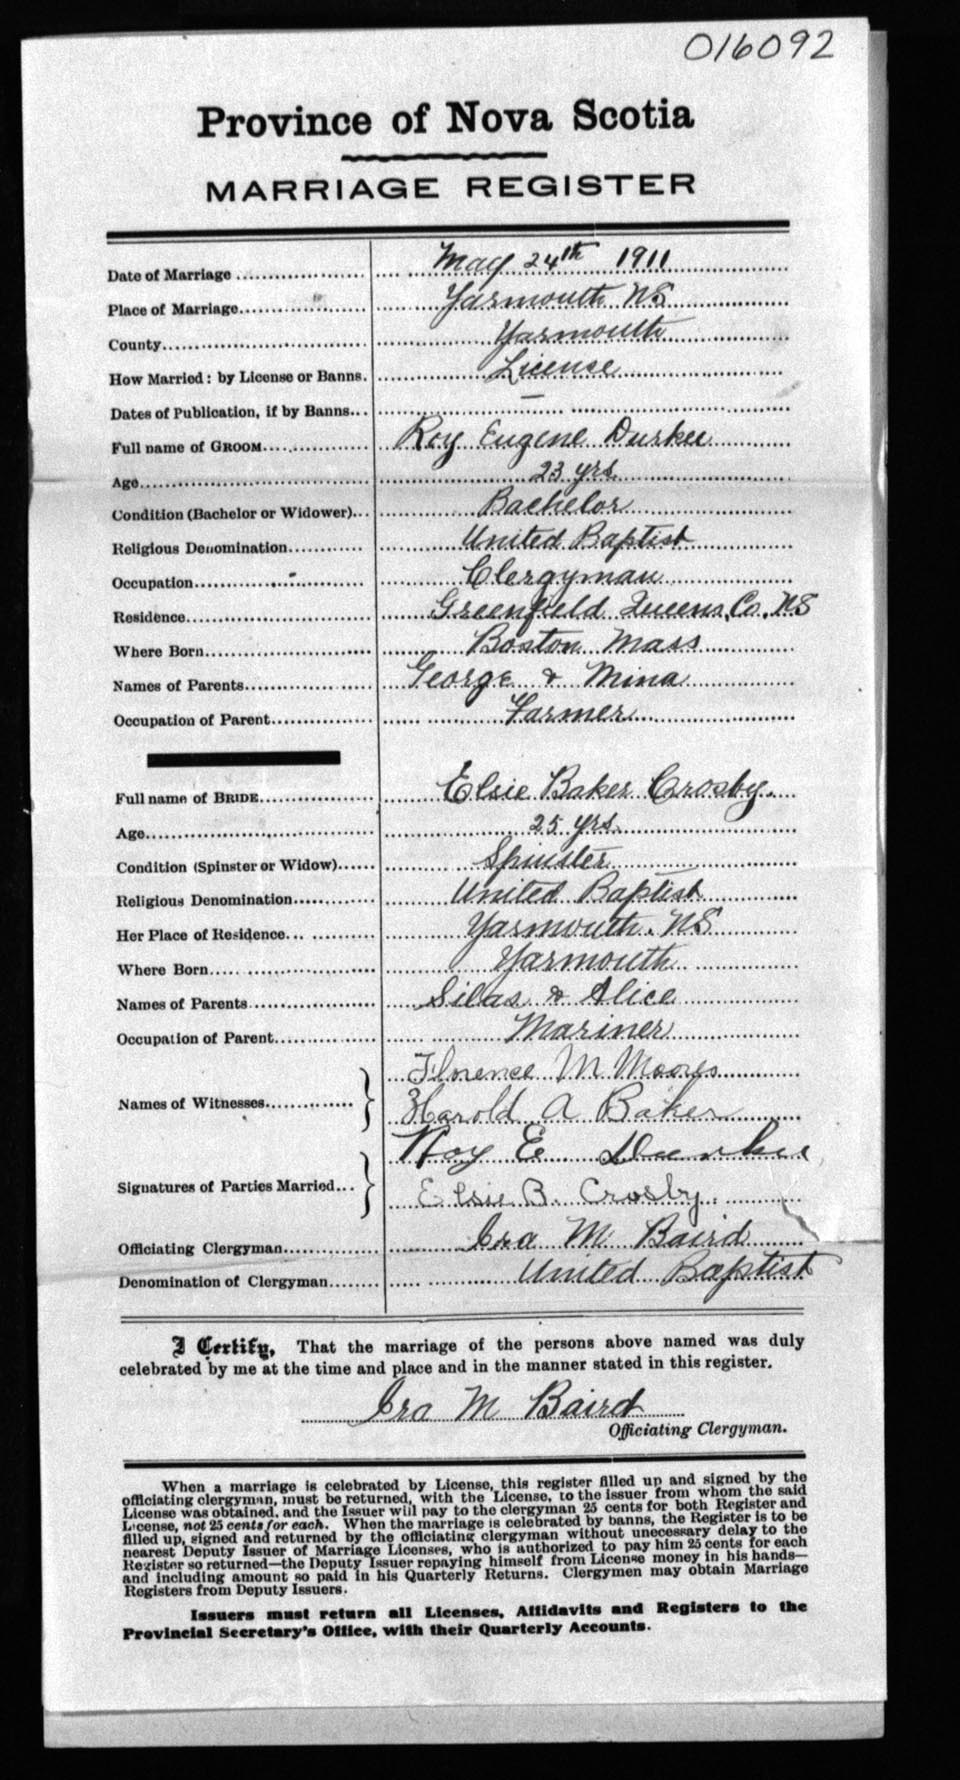 016092
Province of Nova Scotia
MARRIAGE REGISTER
Date of Marriage May 24th 1911
Place of Marriage Yarmouth NS
County Yarmouth
How Married: by License or Banns. License
Dates of Publication, if by Banns —
Full name of GROOM Roy Eugene Durkee
Age 23 yrs
Condition (Bachelor or Widower) Bachelor
Religious Denomination United Baptist
Occupation Clergyman
Residence Greenfield Queens, Co. NS
Where Born Boston Mass
Names of Parents George & Mina
Occupation of Parent Farmer
Full name of BRIDE Elsie Baker Crosby.
Age 25 yrs.
Condition (Spinster or Widow) Spinster
Religious Denomination United Baptist
Her Place of Residence Yarmouth. NS
Where Born Yarmouth
Names of Parents Silas & Alice
Occupation of Parent Mariner
Names of Witnesses Florence M Moores
Harold A Baker
Signatures of Parties Married Roy E Durkee
Elsie B. Crosby.
Officiating Clergyman Ira M Baird
Denomination of Clergyman United Baptist
I Certify, That the marriage of the persons above named was duly
celebrated by me at the time and place and in the manner stated in this register.
Ira M Baird
Officiating Clergyman.
When a marriage is celebrated by License, this register filled up and signed by the
officiating clergyman, must be returned, with the License, to the issuer from whom the said
License was obtained, and the Issuer will pay to the clergyman 25 cents for both Register and
License, not 25 cents for each. When the marriage is celebrated by banns, the Register is to be
filled up, signed and returned by the officiating clergyman without unecessary delay to the
nearest Deputy Issuer of Marriage Licenses, who is authorized to pay him 25 cents for each
Register so returned—the Deputy Issuer repaying himself from License money in his hands—
and including amount so paid in his Quarterly Returns. Clergymen may obtain Marriage
Registers from Deputy Issuers.
Issuers must return all Licenses, Affidavits and Registers to the
Provincial Secretary's Office, with their Quarterly Accounts.